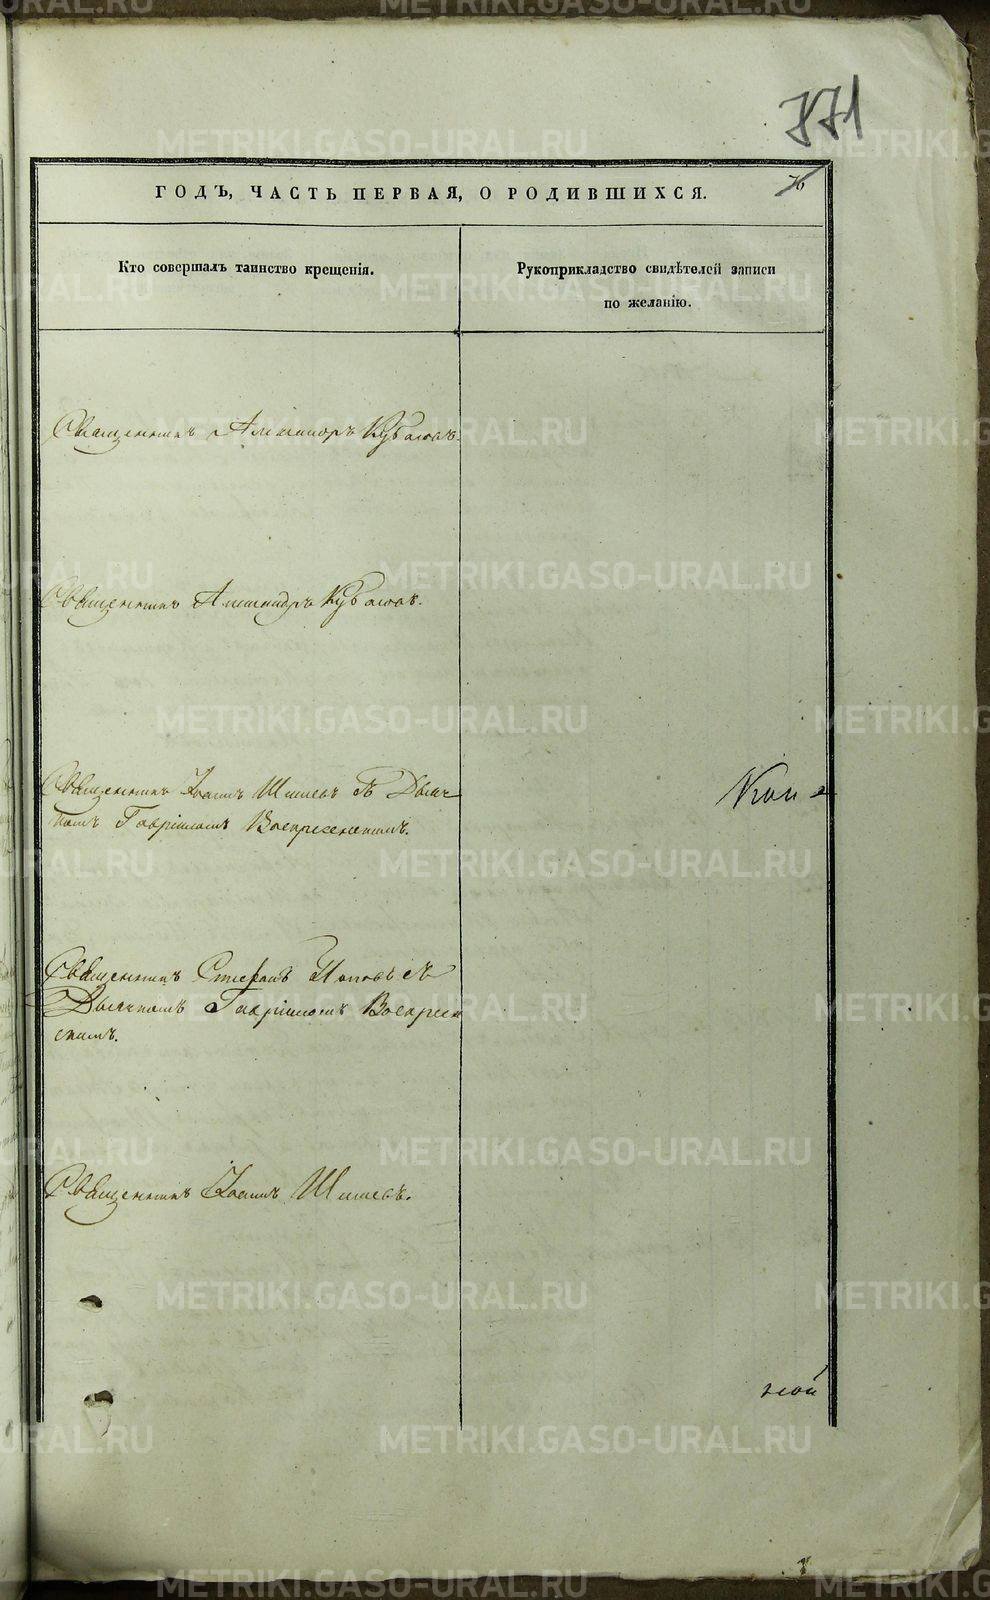 371
76
ГОДЪ, ЧАСТЬ ПЕРВАЯ, О РОДИВШИХСЯ.
Кто совершалъ таинство крещенія.
Рукоприкладство свидѣтелей записи
по желанію.
Священникъ Александръ Кубасовъ.
Священникъ Александръ Кубасовъ.
Священникъ Іоаннъ Шишевъ съ Дьяч
комъ Гавріиломъ Воскресенскимъ.
Священникъ Стефанъ Поповъ съ
Дьячкомъ Гавріиломъ Воскресен
скимъ.
Священникъ Іоаннъ Шишевъ.
METRIKI.GASO-URAL.RU